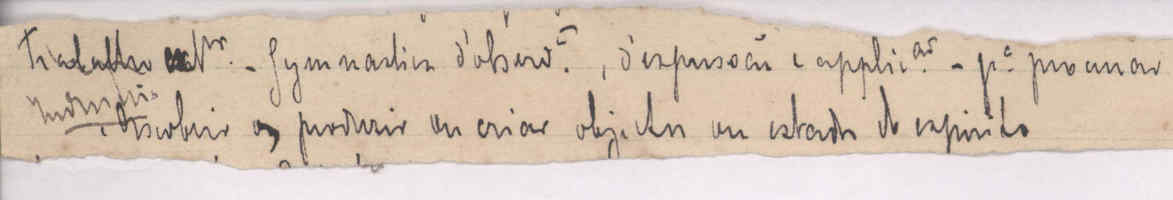 Trabalho extr. - Gymnastica d'observ.ᶜ, d'expressão e applic.ᵃᵒ - p.ᵃ procurar
descobrir ou produzir ou criar objectos ou estados de espirito